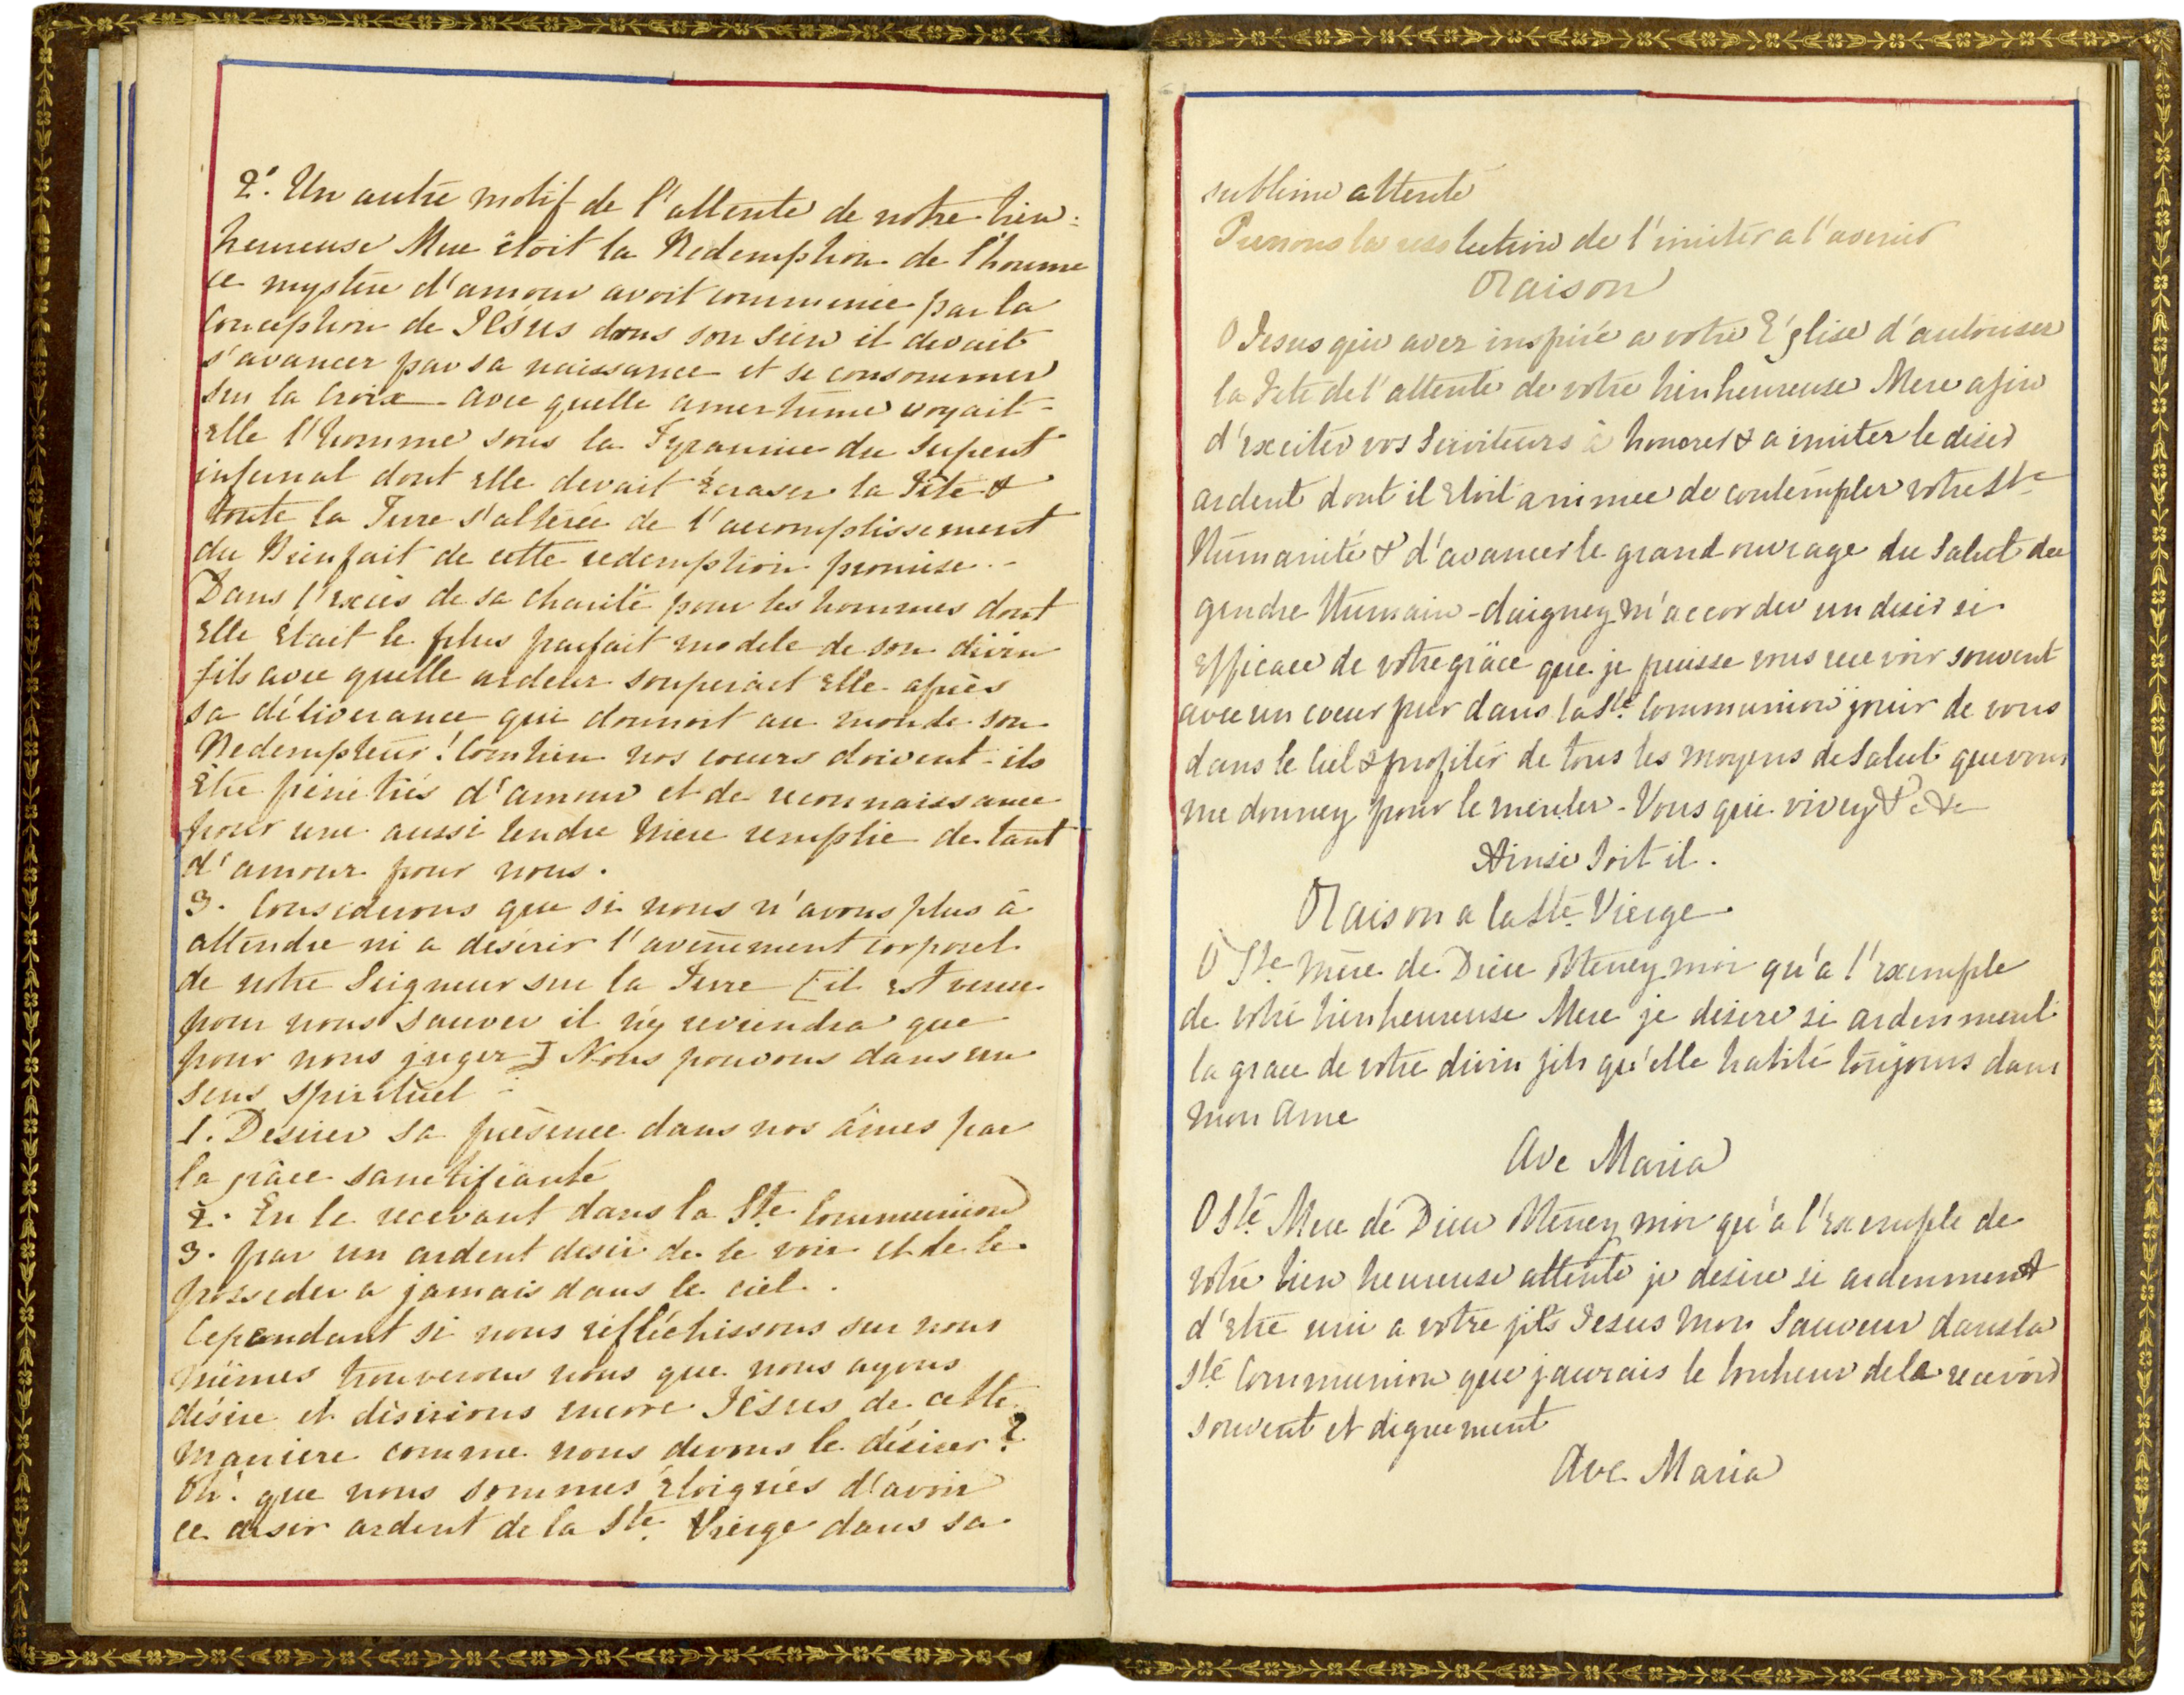 2°. Un autre motif de l'attente de notre bien=
heureuse Mere êtoit la Redemption de l'homme
ce mystère d'amour avoit commencé par la
Conception de JESUS dans son Sein il devait
s'avancer par sa naissance et se consommer
sur la Croix - avec quelle amertume voyait-
elle l'homme sous la Tyrannie du Serpent
infernal dont elle devait écraser la Tête &
toute la Terre s'alterée de l'accomplissement
du Bienfait de cette redemption promise.-
Dans l'excès de sa charité pour les hommes dont
elle était le plus parfait modele de son divin
fils avec quelle ardeur soupirait elle après
sa délivrance qui donnoit au monde son
Redempteur! Combien nos coeurs doivent-ils
Être pénétrés d'amour et de reconnaissance
pour une aussi tendre Mère remplie de tant
d'amour pour nous.
3. Considerons que si nous n'avons plus à
attendre ni a désirer l'avènement corporel
de notre Seigneur sur la Terre [il est venu
pour nous sauver il n'y reviendra que
pour nous juger] Nous pouvons dans un
sens spirituel :
1. Desirer sa présence dans nos âmes par
la grâce sanctifiante
2. En le recevant dans la Ste Communion
3. par un ardent desir de le voir et de le
posseder a jamais dans le ciel.
Cependant si nous réfléchissons sur nous
mêmes trouverons nous que nous ayons
désiré et désirions encore Jésus de cette
maniere comme nous devons le désirer?
Oh! que nous sommes éloignés d'avoir
ce desir ardent de la Ste Vierge dans sa
sublime attente
Prenons la resolution de l'imiter a l'avenir
Oraison
O Jesus qui avez inspiré a votre Église d'autoriser
la Fete de l'attente de votre bienheureuse Mere afin
d'exciter vos Serviteurs à honorer & a imiter le desir
ardent dont il etoit animee de contempler votre Ste
Humanité & d'avancer le grand ouvrage du Salut du
gendre Humain - daignez m'accorder un desir si
Efficace de votre grâce que je puisse vous recevoir souvent
avec un coeur pur dans la Ste Communion jouir de vous
dans le Ciel & profiter de tous les moyens de Salut que vous
me donnez pour le meriter - Vous qui vivez &c &c
Ainsi Soit il.
Oraison a la Ste Vierge
O Ste Mère de Dieu Obtenez moi qu'a l'exemple
de votre bienheureuse Mere je desire si ardenment
la grace de votre divin fils qu'elle habite toujours dans
mon Ame
Ave Maria
O Ste Mere de Dieu Obtenez moi qu'a l'Exemple de
votre bien heureuse attente je desire si ardenment
d'etre uni a votre fils Jesus Mon Sauveur dans la
Ste Communion que j'aurais le bonheur de la recevoir
souvent et dignement
Ave Maria